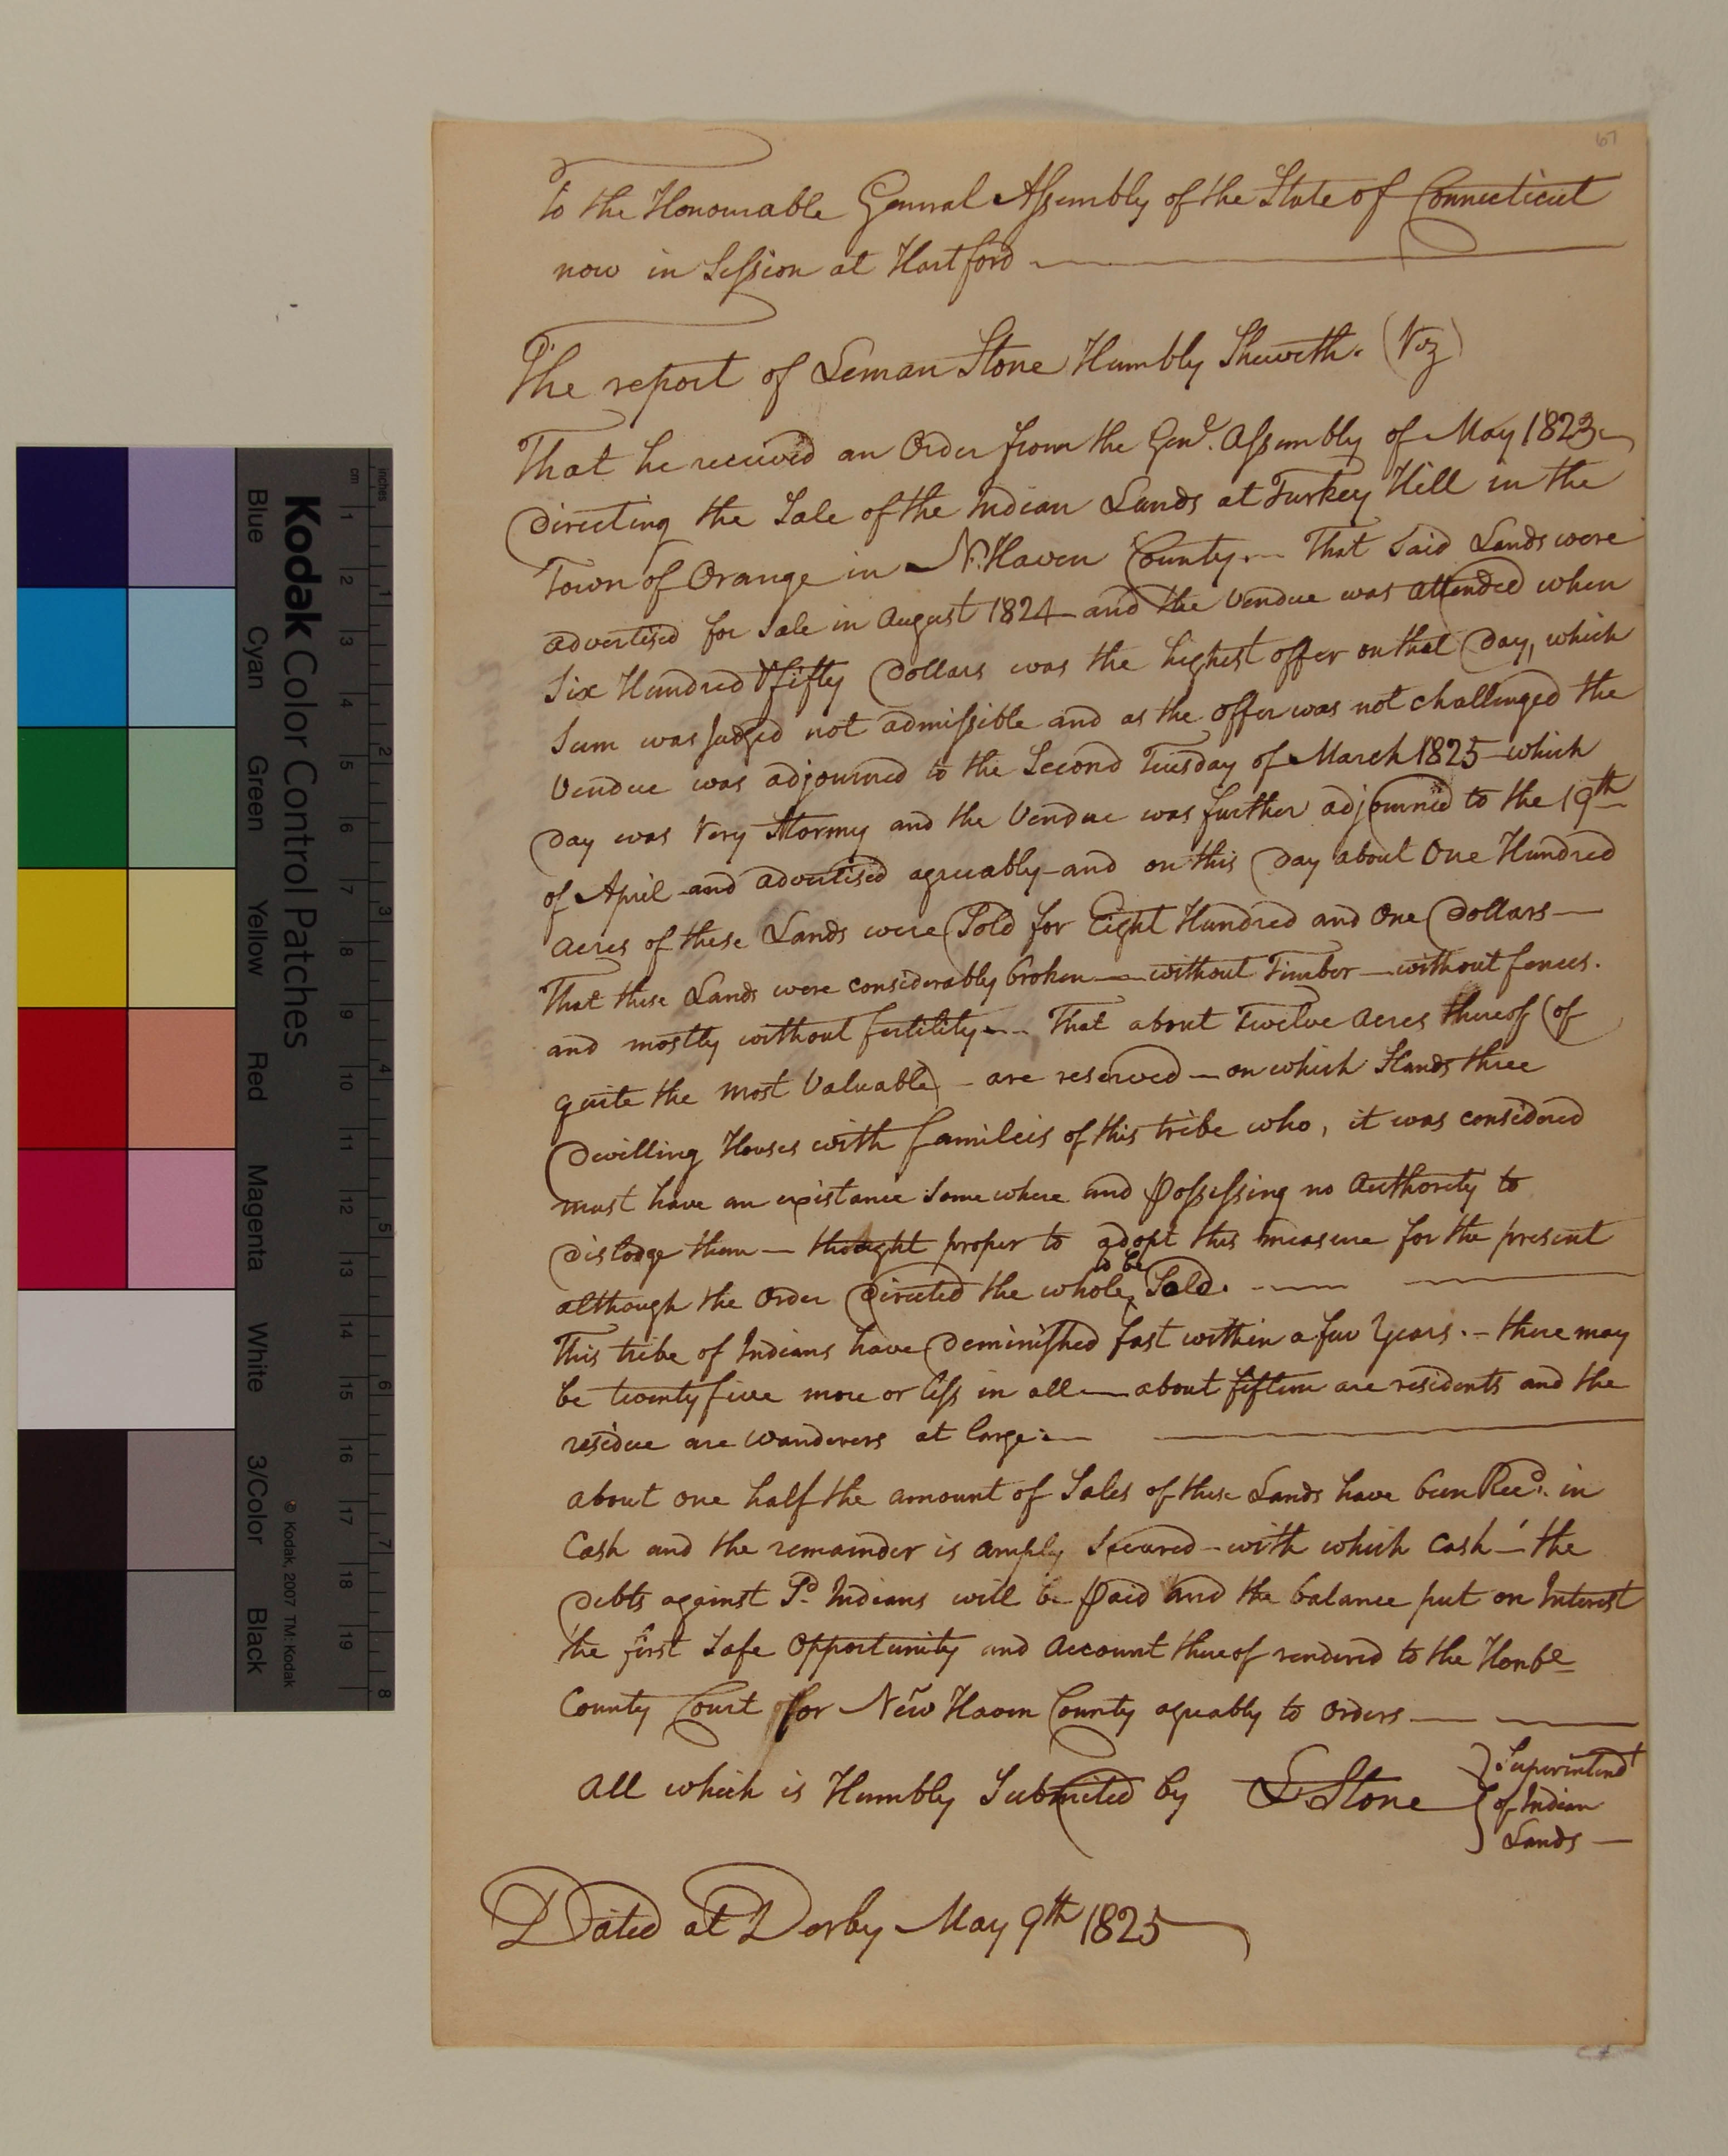 67
To the Honourable General Assembly of the State of Connecticut
now in Session at Hartford
The report of Leman Stone Humbly Sheweth. (Viz)
That he received an Order from the Genl. Assembly of May 1823
Directing the Sale of the Indian Lands at Turkey Hill in the
Town of Orange in N. Haven County. — That said Lands were
advertised for Sale in August 1824 — and the Vendue was attended when
Six Hundred & fifty Dollars was the highest offer on that Day, which
Sum was Judged not admissible and as the offer was not challenged the
Vendue was adjourned to the Second Tuesday of March 1825 — which
Day was Very Stormy and the Vendue was further adjourned to the 19th
of April — and advertised agreeably — and on this Day about One Hundred
acres of these Lands were Sold for Eight Hundred and One Dollars —
That these Lands were considerably broken — without Timber — without fences.
and mostly without fertility — That about Twelve Acres thereof (of
quite the most Valuable) — are reserved — on which Stands three
Dwelling Houses with Famileis of this tribe who, it was considered
must have an existance Somewhere and possessing no Authority to
Dislodge them — thought proper to adopt this measure for the present
although the Order Directed the whole to be Sold.
This tribe of Indians have Deminished fast within a few Years. — there may
be twenty five more or less in all — about fifteen are residents and the
residue are wanderers at large: —
about one half the amount of Sales of these Lands have been Recd. in
Cash and the remainder is amply Secured — with which Cash — the
Debts against Sd Indians will be paid and the balance put on Interest
the first Safe Opportunity and Account thereof rendered to the Honble
County Court for New Haven County agreably to Orders —
All which is Humbly Submited by L. Stone } Superintendt
of Indian
Lands —
Dated at Derby May 9th 1825
Kodak Color Control Patches
© Kodak, 2007 TM: Kodak
Blue Cyan Green Yellow Red Magenta White 3/Color Black
cm 1 2 3 4 5 6 7 8 9 10 11 12 13 14 15 16 17 18 19
inches 1 2 3 4 5 6 7 8